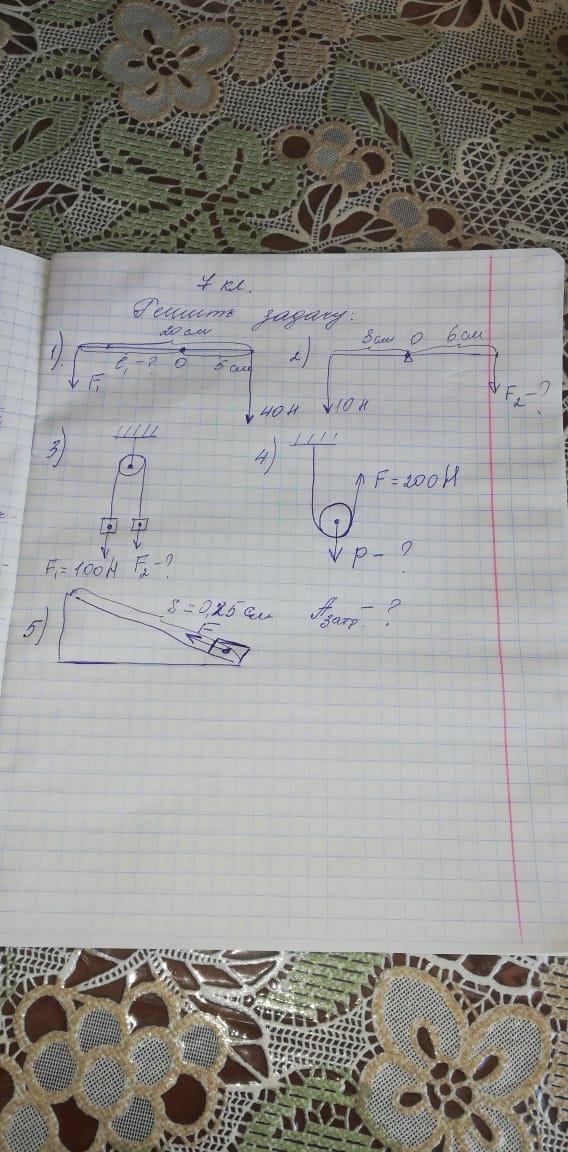 7 кл.
Решить задачу:
20 см
1). ℓ₁ - ? O 5 см
F₁
40 Н
2) 3см O 6 см
10 Н
F₂ - ?
3)
F₁ = 100 Н F₂ - ?
4) F = 200 Н
P - ?
5) S = 0,25 см Aзатр. - ?
F